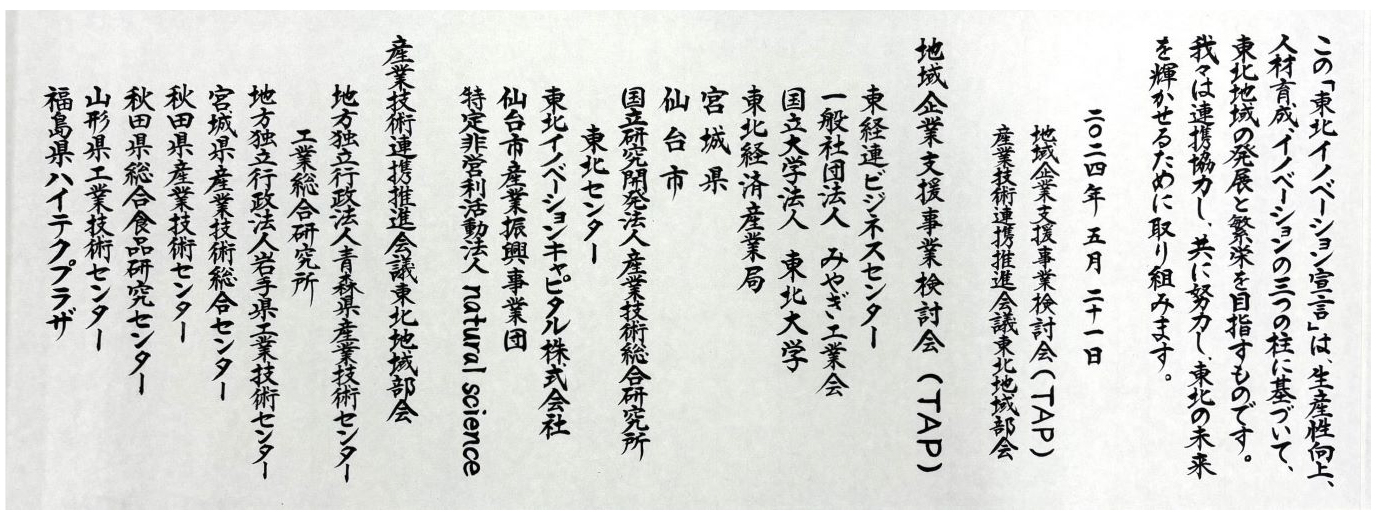 この「東北イノベーション宣言」は、生産性向上、
人材育成、イノベーションの三つの柱に基づいて、
東北地域の発展と繁栄を目指すものです。
我々は連携協力し、共に努力し、東北の未来
を輝かせるために取り組みます。
二〇二四年 五月 二十一日
地域企業支援事業検討会(TAP)
産業技術連携推進会議東北地域部会
地域企業支援事業検討会(TAP)
東経連ビジネスセンター
一般社団法人 みやぎ工業会
国立大学法人 東北大学
東北経済産業局
宮城県
仙台市
国立研究開発法人産業技術総合研究所
東北センター
東北イノベーションキャピタル株式会社
仙台市産業振興事業団
特定非営利活動法人 natural science
産業技術連携推進会議東北地域部会
地方独立行政法人青森県産業技術センター
工業総合研究所
地方独立行政法人岩手県工業技術センター
宮城県産業技術総合センター
秋田県産業技術センター
秋田県総合食品研究センター
山形県工業技術センター
福島県ハイテクプラザ